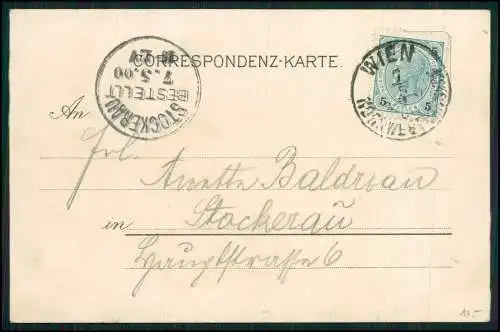 CORRESPONDENZ-KARTE.
7.5.00
BESTELLT
STOCKERAU
WIEN
5 5
An
Frl.
Anette Baldrian
in Stockerau
Hauptstrasse 6
10.-